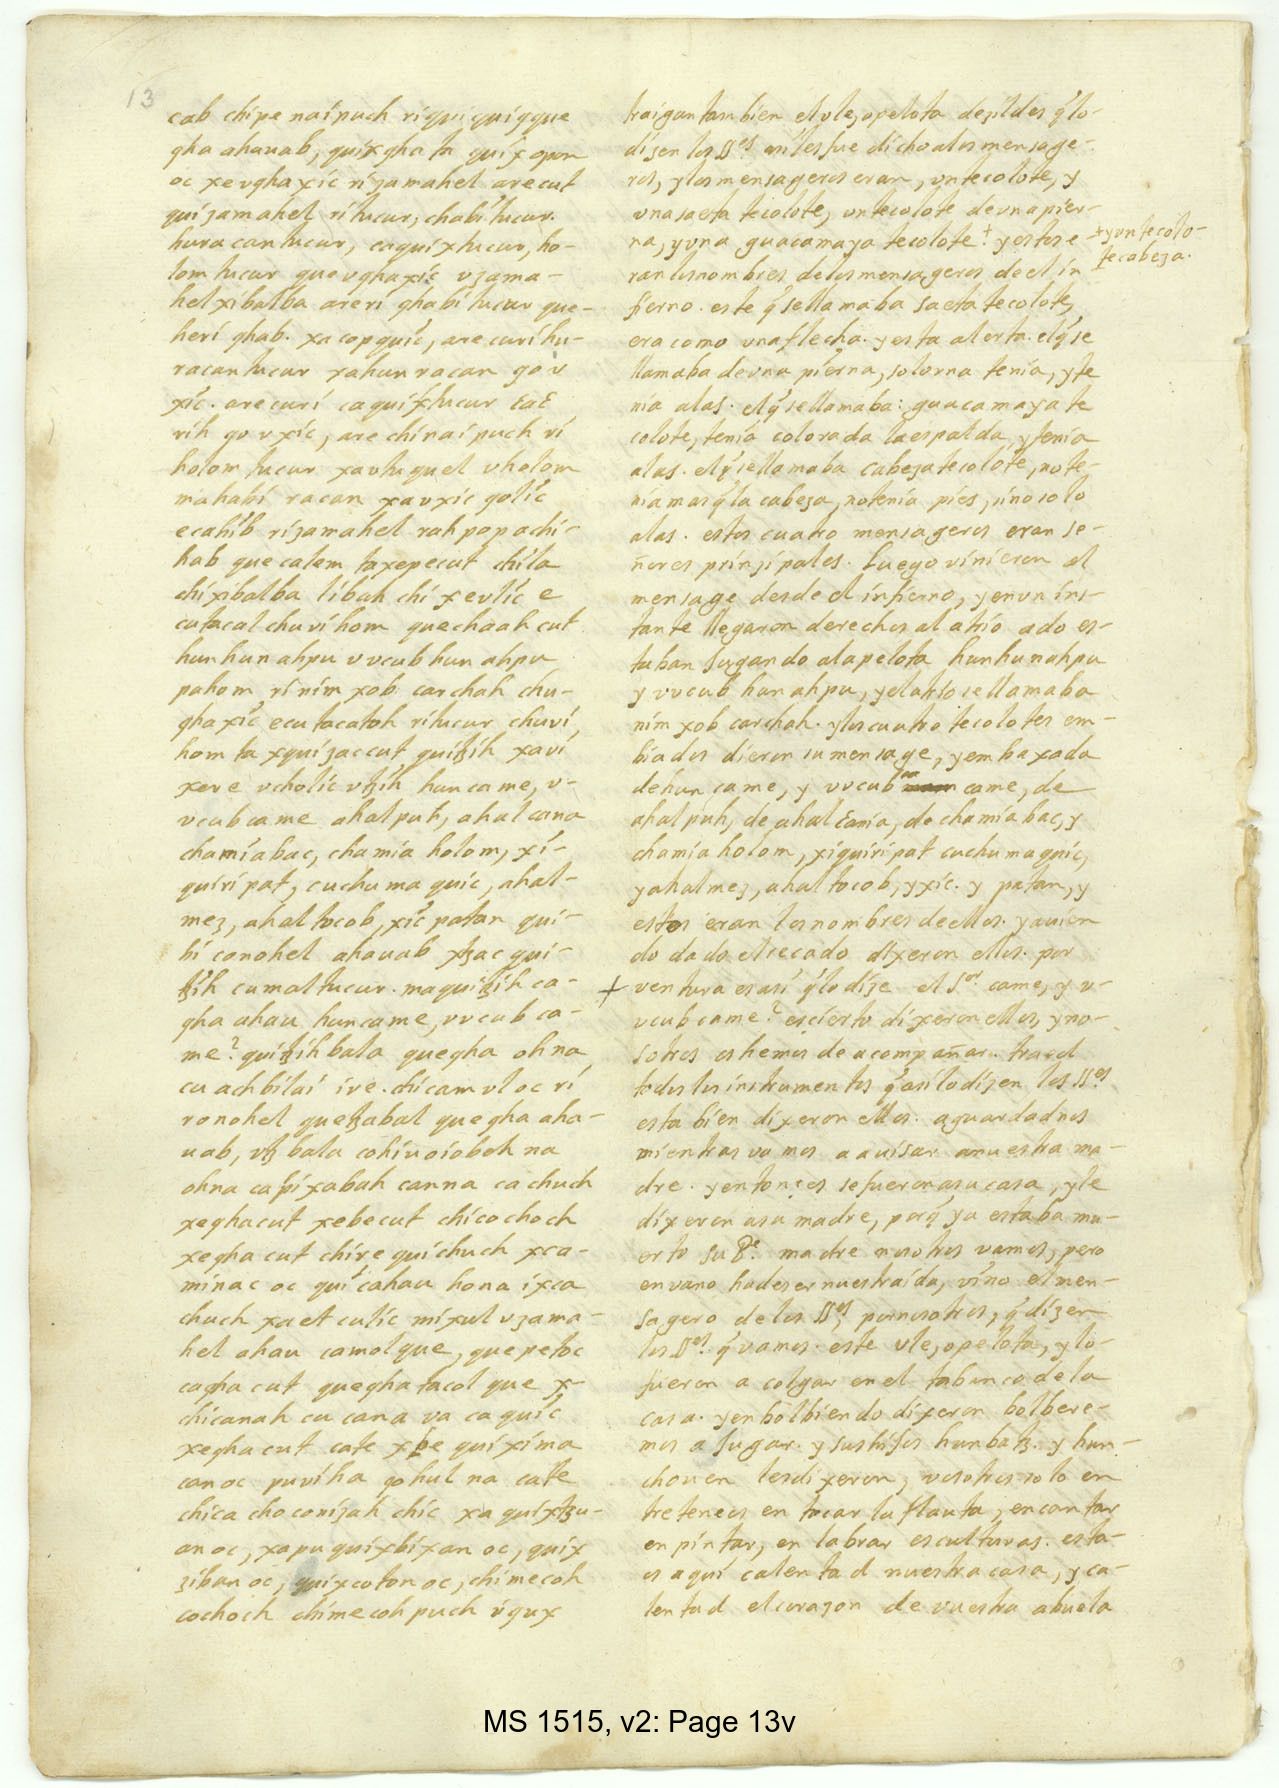 13
cab chipe naipuch ri qui quiqque
qha ahauab, quixqha ta quix opon
oc xevqhaxic rizamahel arecut
quizamahel ritucur, chabitucur.
huracan tucur, caquix tucur, ho-
lom tucur que vqhaxic vzama-
hel xibalba are ri qhabi tucur que-
heri qhab. xa copquic, are curi hu-
racan tucur xahun racan go v
xic. are curi caquix tucur εaε
rih go vxic, are chi naipuch ri
holom tucur xavtuquel vholom
mahabi racan xavxic golic
ecahib rizamahel rahpop achi-
hab que calem taxepecut chila
chi xibalba libah chi xevlic e
cutacal chuvi hom quechaah cut
hunhun ahpu vvcub hun ahpu
pahom ri nim xob carchah chu-
qhaxic ecu tacatoh ritucur chuvi
hom ta xquizaccut quitzih xavi
xere vcholic vtzih hun came, v-
vcub came ahalpuh, ahal cana
chamiabac, chamia holom, xi-
quiri pat, cuchuma quic, ahal-
mez, ahal tocob, xic patan qui-
bi conohel ahauab xtzac qui-
tzih cumal tucur. maquitzih ca-
qha ahau huncame, vvcub ca-
me? quitzih bala queqha ohna
cu achbilai ive. chicam vloc ri
ronohel quetzabal queqha aha-
uab, vtz bala cohivoiobeh na
ohna capixabah canna ca chuch
xeqhacut xebecut chicochoch
xeqha cut chire quichuch xca-
minac oc quicahau hona ixca
chuch xaet culic mixul vzama-
hel ahau camolque, que petoc
caqha cut queqha tacol que x-
chicanah cu cana va ca quic
xeqhacut cate xbe quixima
canoc puviha gohul na cate
chica choconizah chic xa quixtzu-
an oc, xapu quixbixan oc, quix
ziban oc, quixcoton oc, chimecoh
cochoch chimecoh puch vqux
traigan tambien el vle, o pelota dezildes q̃ lo-
dizen los SSes asi les fue dicho a los mensage-
ros, y los mensageros eran, vn tecolote, y
vna saeta tecolote, vn tecolote de vna pier-
na, y vna guacamaya tecolote. + y estos e
+ y vn tecolo-
te cabeza.
ran los nombres de los mensageros de el in
fierno. este q̃ se llamaba saeta tecolote,
era como vna flecha. y esta alerta. el q̃ se
llamaba de vna pierna, solo vna tenia, y te
nia alas. el q̃ se llamaba: guacamaya te
colote, tenia colorada la espalda, y tenia
alas. el q̃ se llamaba cabeza tecolote, no te-
nia mas q̃ la cabeza, no tenia pies, sino solo
alas. estos cuatro mensageros eran se-
ñores prinzipales. Luego vinieron el
mensage desde el infierno, y en vn ins-
tante llegaron derechos al atrio ado es-
taban Jugando a la pelota hunhunahpu
y vvcub hunahpu, y el atrio se llamaba
nim xob carchah. y los cuatro tecolotes em-
biados dieron su mensage, y embaxada
de hun came, y vvcub came, de
ahal puh, de ahal εania, de chamiabac, y
chamia holom, xiquiripat cuchumaquic,
y ahalmez, ahal tocob, y xic. y patan, y
estos eran los nombres de ellos. y auien
do dado el recado dixeron ellos. por
+ ventura es asi q̃ lo dize el Sor came, y v-
vcub came? es cierto dixeron ellos, y no-
sotros os hemos de acompañar. traed
todos los instrumentos q̃ asi lo dizen los SSes
esta bien dixeron ellos. aguardadnos
mientras vamos a auisar a nuestra ma-
dre. y entonzes se fueron a su casa, y le
dixeron a su madre, porq̃ ya estaba mu-
erto su Pe. madre nosotros vamos, pero
en vano ha de ser nuestra ida, vino el men-
sagero de los SSes por nosotros, q̃ dizen
los SSes q̃ vamos. este vle, o pelota, y lo-
fueron a colgar en el tabanco de la
casa. y en bolbiendo dixeron bolbere-
mos a Jugar. y sus hijos hunbatz. y hun-
chouen les dixeron, vosotros solo en
treteneos en tocar la flauta, en cantar
en pintar, en labrar esculturas. esta-
os aqui calentad nuestra casa, y ca-
lentad el corazon de vuestra abuela
MS 1515, v2: Page 13v